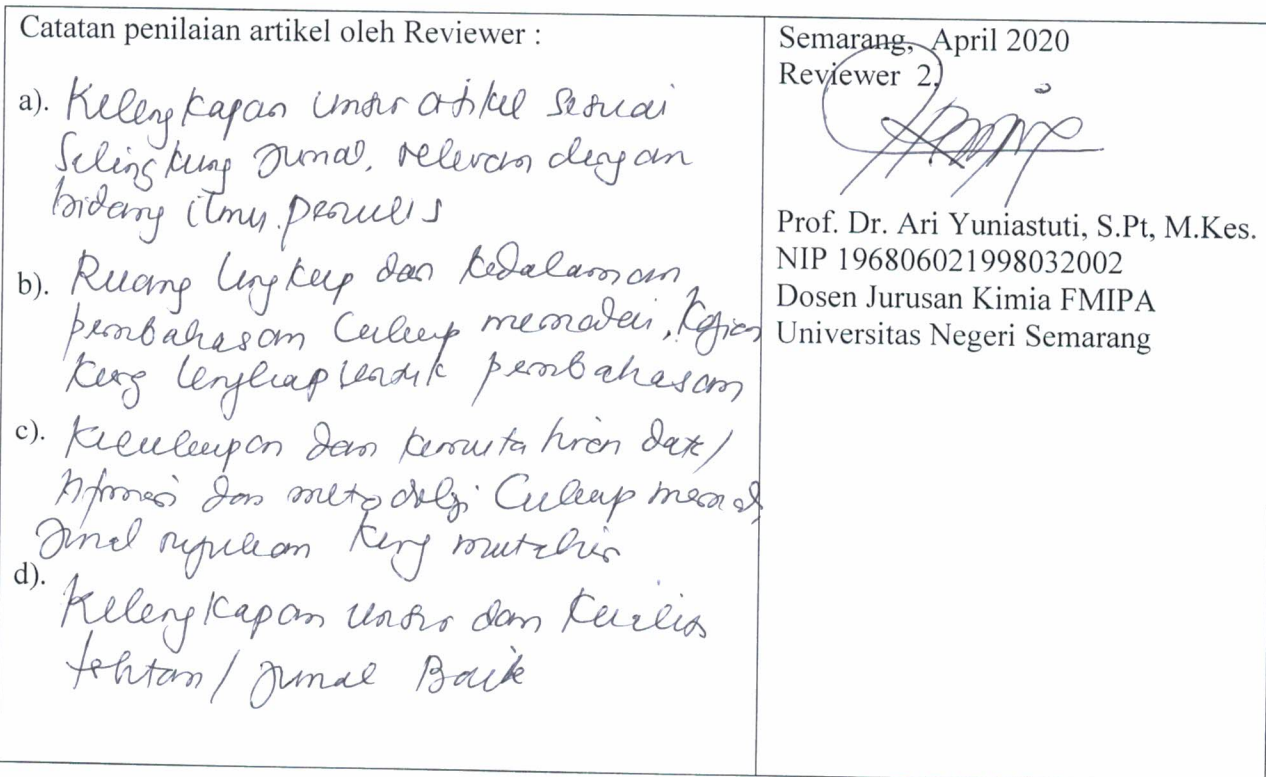 Catatan penilaian artikel oleh Reviewer :
a). Kelengkapan unsur artikel sesuai
selingkung jurnal, relevan dengan
bidang ilmu penulis
b). Ruang lingkup dan kedalaman
pembahasan cukup memadai, kajian
kurang lengkap untuk pembahasan
c). Kecukupan dan kemutahiran data/
informasi dan metodologi cukup
jurnal rujukan kurang mutahir
d). Kelengkapan unsur dan kualitas
terbitan/ jurnal Baik
Semarang, April 2020
Reviewer 2,
Prof. Dr. Ari Yuniastuti, S.Pt, M.Kes.
NIP 196806021998032002
Dosen Jurusan Kimia FMIPA
Universitas Negeri Semarang